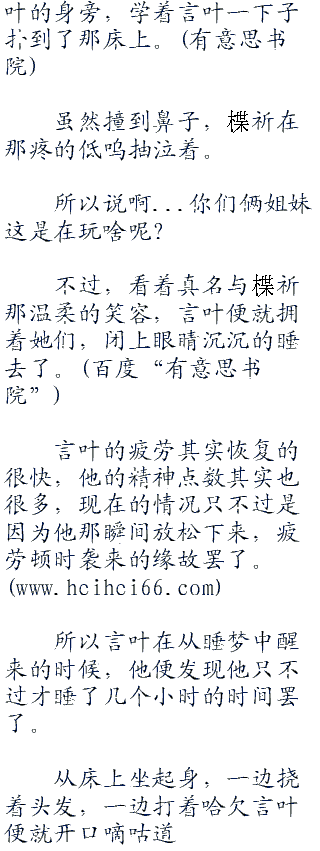 叶的身旁，学着言叶一下子
扑到了那床上。(有意思书
院)
虽然撞到鼻子，楪祈在
那疼的低呜抽泣着。
所以说啊...你们俩姐妹
这是在玩啥呢？
不过，看着真名与楪祈
那温柔的笑容，言叶便就拥
着她们，闭上眼睛沉沉的睡
去了。(百度“有意思书
院”)
言叶的疲劳其实恢复的
很快，他的精神点数其实也
很多，现在的情况只不过是
因为他那瞬间放松下来，疲
劳顿时袭来的缘故罢了。
(www.hcihci66.com)
所以言叶在从睡梦中醒
来的时候，他便发现他只不
过才睡了几个小时的时间罢
了。
从床上坐起身，一边挠
着头发，一边打着哈欠言叶
便就开口嘀咕道